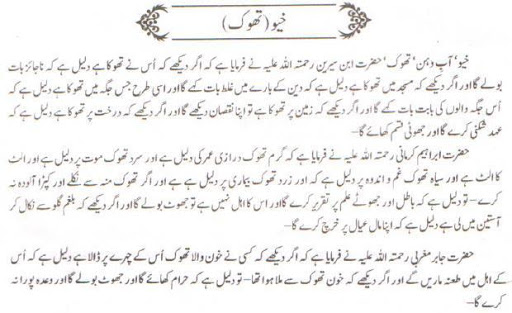 خیو (تھوک)
خیو' آبِ دہن' تھوک' حضرت ابن سیرین رحمتہ اللہ علیہ نے فرمایا ہے کہ اگر دیکھے کہ اُس نے تھوکا ہے دلیل ہے کہ ناجائز بات
بولے گا اور اگر دیکھے کہ مسجد میں تھوکا ہے دلیل ہے کہ دین کے بارے میں غلط بات کہے گا اور اسی طرح جس جگہ میں تھوکا ہے دلیل ہے کہ
اُس جگہ والوں کی بابت بات کہے گا اور اگر دیکھے کہ زمین پر تھوکا ہے تو اپنا نقصان دیکھے گا اور اگر دیکھے کہ درخت پر تھوکا ہے دلیل ہے کہ
عہد شکنی کرے گا اور جھوٹی قسم کھائے گا–
حضرت ابراہیم کرمانی رحمتہ اللہ علیہ نے فرمایا ہے کہ گرم تھوک درازی عمر کی دلیل ہے اور سرد تھوک موت پر دلیل ہے اور الٹ
کا الٹ ہے اور سیاہ تھوک غم و اندوہ پر دلیل ہے اور زرد تھوک بیماری پر دلیل ہے ہے اور اگر تھوک منہ سے نکلے اور کپڑا آلودہ نہ
کرے– تو دلیل ہے کہ باطل اور جھوٹے علم پر تقریر کرے گا اور اس کا اہل نہیں ہے تو جھوٹ بولے گا اور اگر دیکھے کہ بلغم گلو سے نکال کر
آستین میں لی ہے دلیل ہے کہ اپنا مال عیال پر خرچ کرے گا–
حضرت جابر مغربی رحمتہ اللہ علیہ نے فرمایا ہے کہ اگر دیکھے کہ کسی نے خون والا تھوک اُس کے چہرے پر ڈالا ہے دلیل ہے کہ اُس
کے اہل میں طعنہ ماریں گے اور اگر دیکھے کہ خون تھوک سے ملا ہوا تھا– تو دلیل ہے کہ حرام کھائے گا اور جھوٹ بولے گا اور وعدہ پورا نہ
کرے گا–